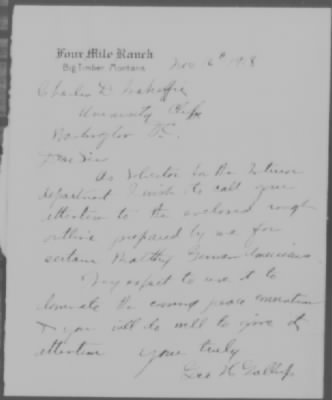 Four Mile Ranch
Big Timber, Montana
Nov 6th 1918
Charles D Mahaffie
University Club
Washington D.C.
Dear Sir
As Solicitor for the Interior
department I wish to call your
attention to the enclosed rough
outline prepared by me for
certain Wealthy German Americans.
They expect to use it to
the coming peace convention
& you will do well to give it
attention yours truly
Geo H